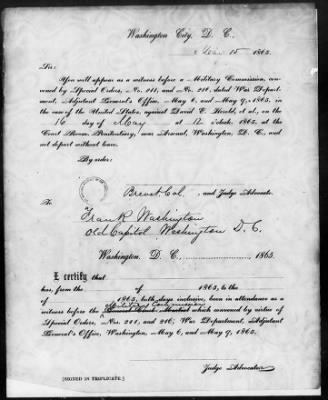 Washington City, D. C.
May 15 1865.
Sir:
You will appear as a witness before a Military Commission, con-
vened by Special Orders, No. 211, and No. 216, dated War Depart-
ment, Adjutant General's Office, May 6, and May 9, 1865, in
the case of the United States, against David E. Herold, et al., on the
16 day of May at 12 o'clock, 1865, at the
Court Room, Penitentiary, near Arsenal, Washington, D. C., and
not depart without leave.
By order:
Brevet Col. and Judge Advocate.
To
Frank Washington
Old Capitol Washington D. C.
Washington, D. C. 1865.
I certify that
has, from the of 1865, to the
of 1865, both days inclusive, been in attendance as a
witness before the General Court Martial which convened by virtue of
Special Orders, Nos. 211, and 216, War Department, Adjutant
General's Office, Washington, May 6, and May 9, 1865.
Judge Advocate.
[SIGNED IN TRIPLICATE.]